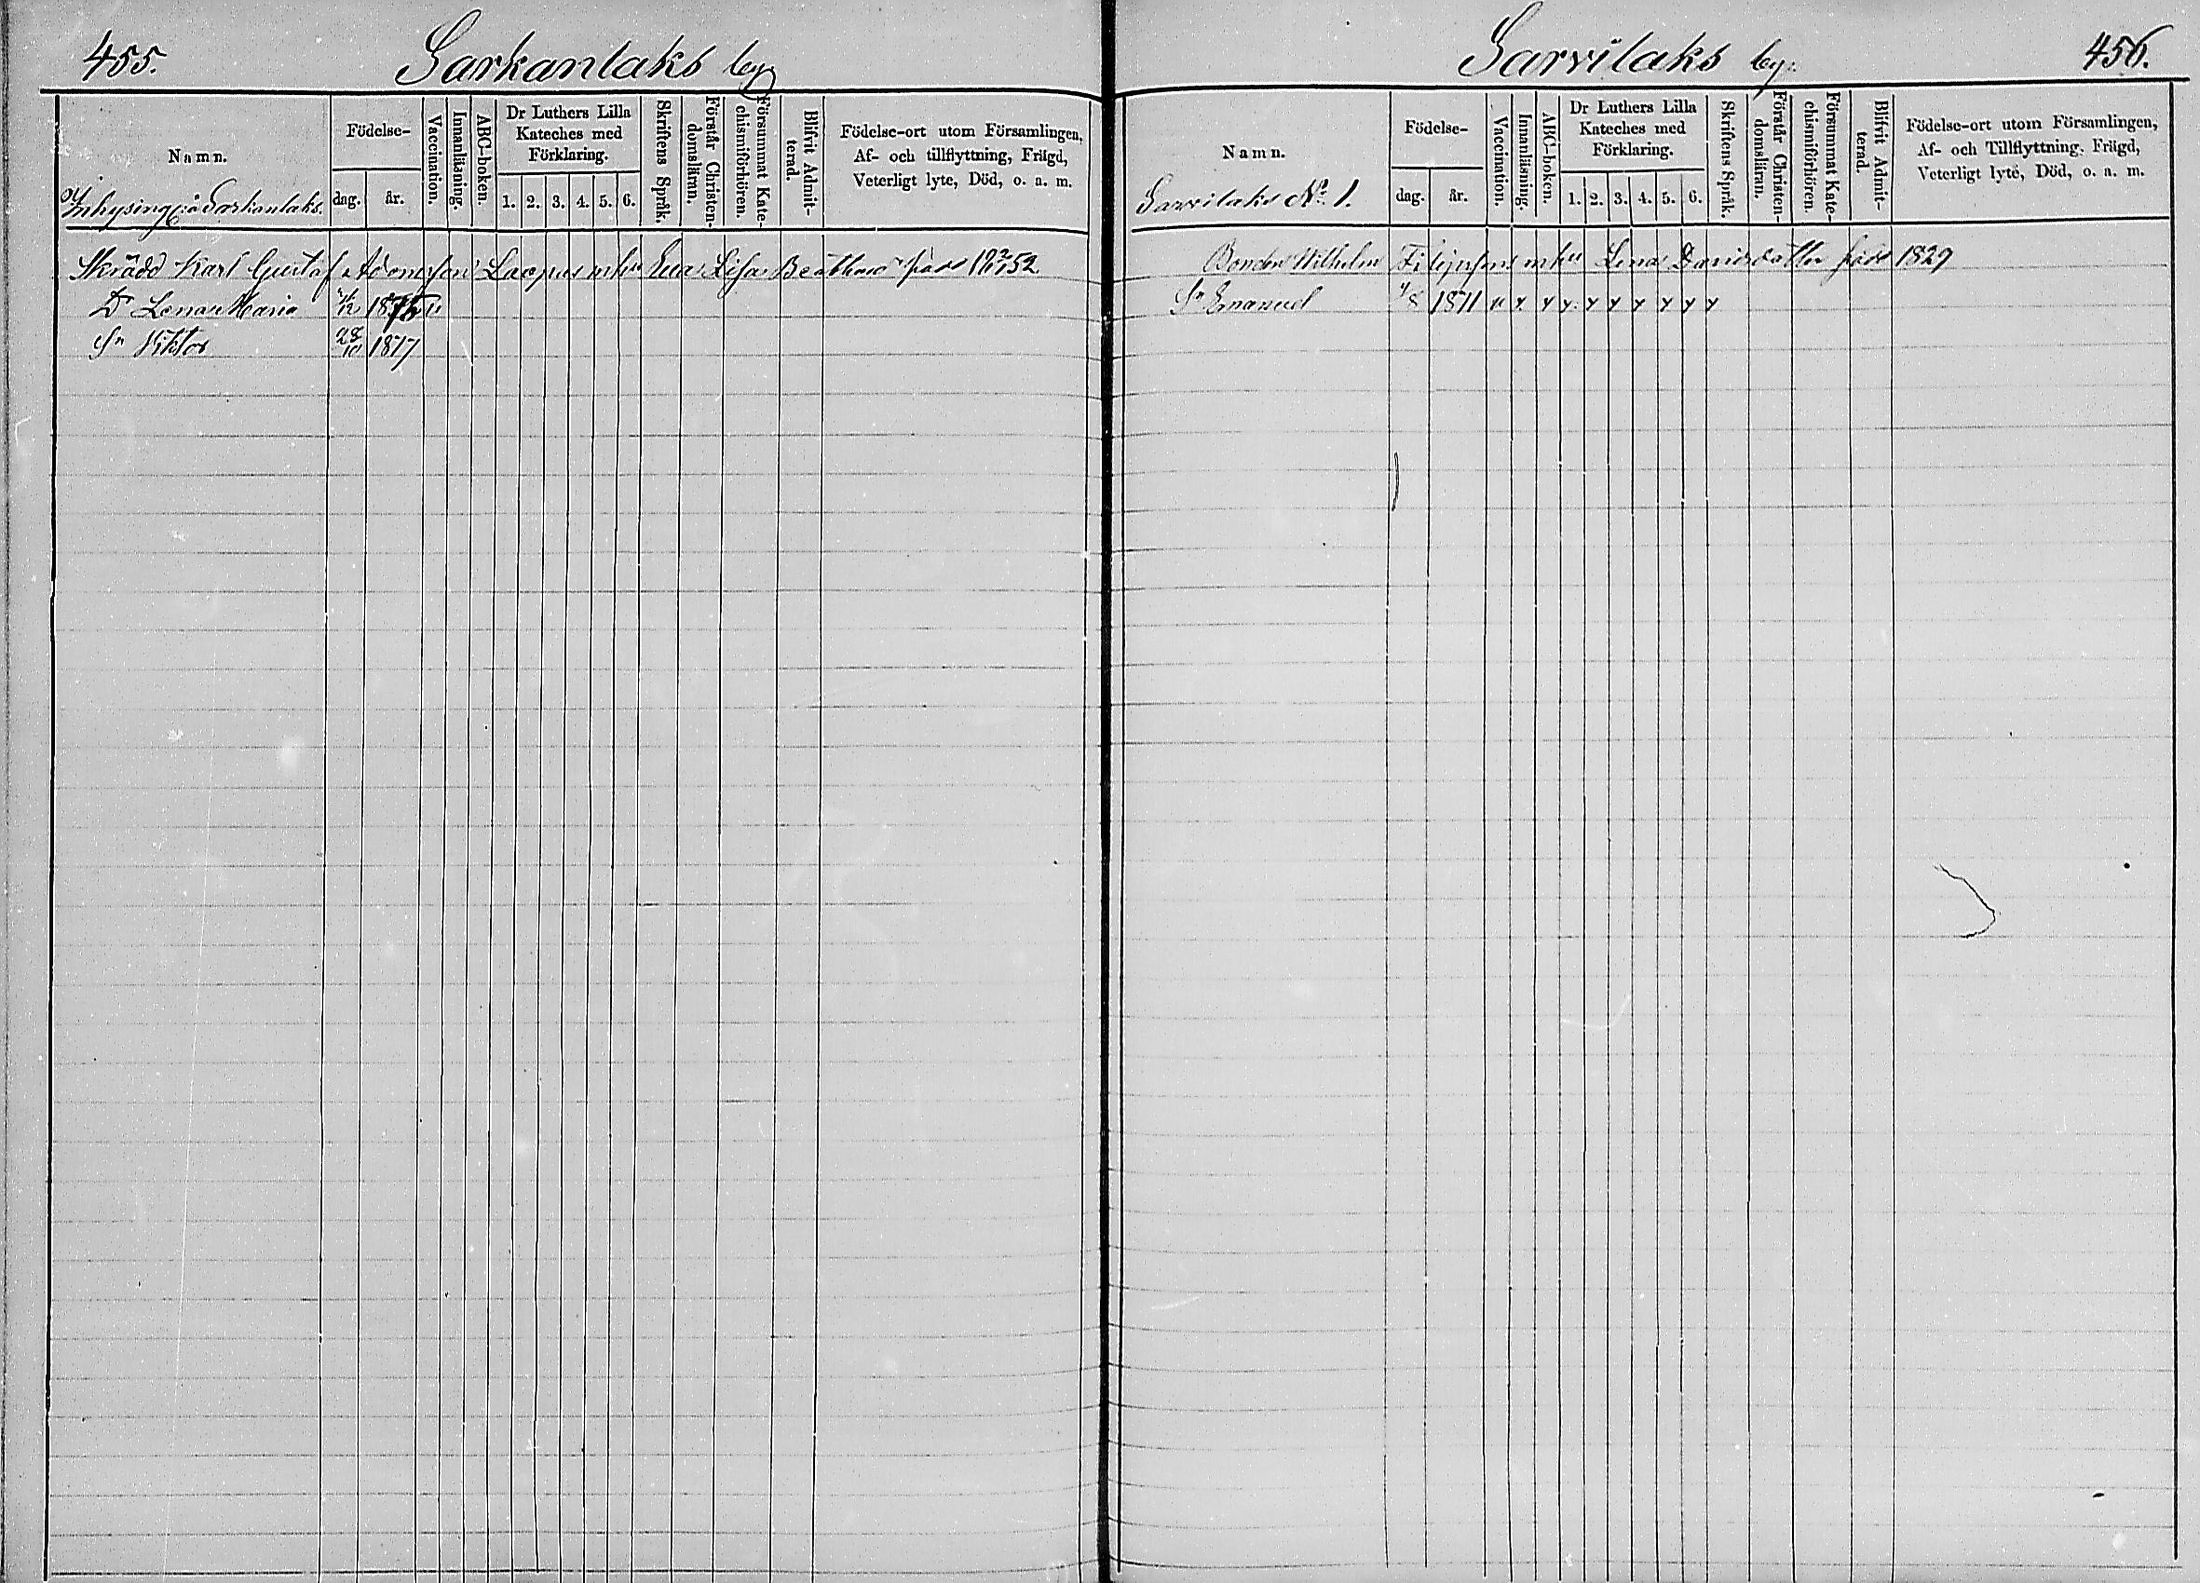 455. Sarkanlaks by.
Namn.
Inhysing på Sarkanlaks.
Födelse-
dag. år.
Vaccination.
Innanläsning.
ABC-boken.
Dr Luthers Lilla
Kateches med
Förklaring.
1. 2. 3. 4. 5. 6.
Skriftens Språk.
Förstår Christen-
domsläran.
Försummat Kate-
chismiförhören.
Blifvit Admit-
terad.
Födelse-ort utom Församlingen,
Af- och tillflyttning, Frägd,
Veterligt lyte, Död, o. a. m.
Skrädd Karl Gustaf Adamsson Lacpus Lisa född 52
Dr Lena Maria 1875 v
Sn Viktor 28/10 1877
Sarvilaks by. 456.
Namn.
Sarvilaks No 1.
Födelse-
dag. år.
Vaccination.
Innanläsning.
ABC-boken.
Dr Luthers Lilla
Kateches med
Förklaring.
1. 2. 3. 4. 5. 6.
Skriftens Språk.
Förstår Christen-
domsläran.
Försummat Kate-
chismiförhören.
Blifvit Admit-
terad.
Födelse-ort utom Församlingen,
Af- och Tillflyttning, Frägd,
Veterligt lyte, Död, o. a. m.
Bonden Wilhelm Filipssons Lena Davidsdotter född 1829
Sn Emanuel 1871 v x x x x x x x x x